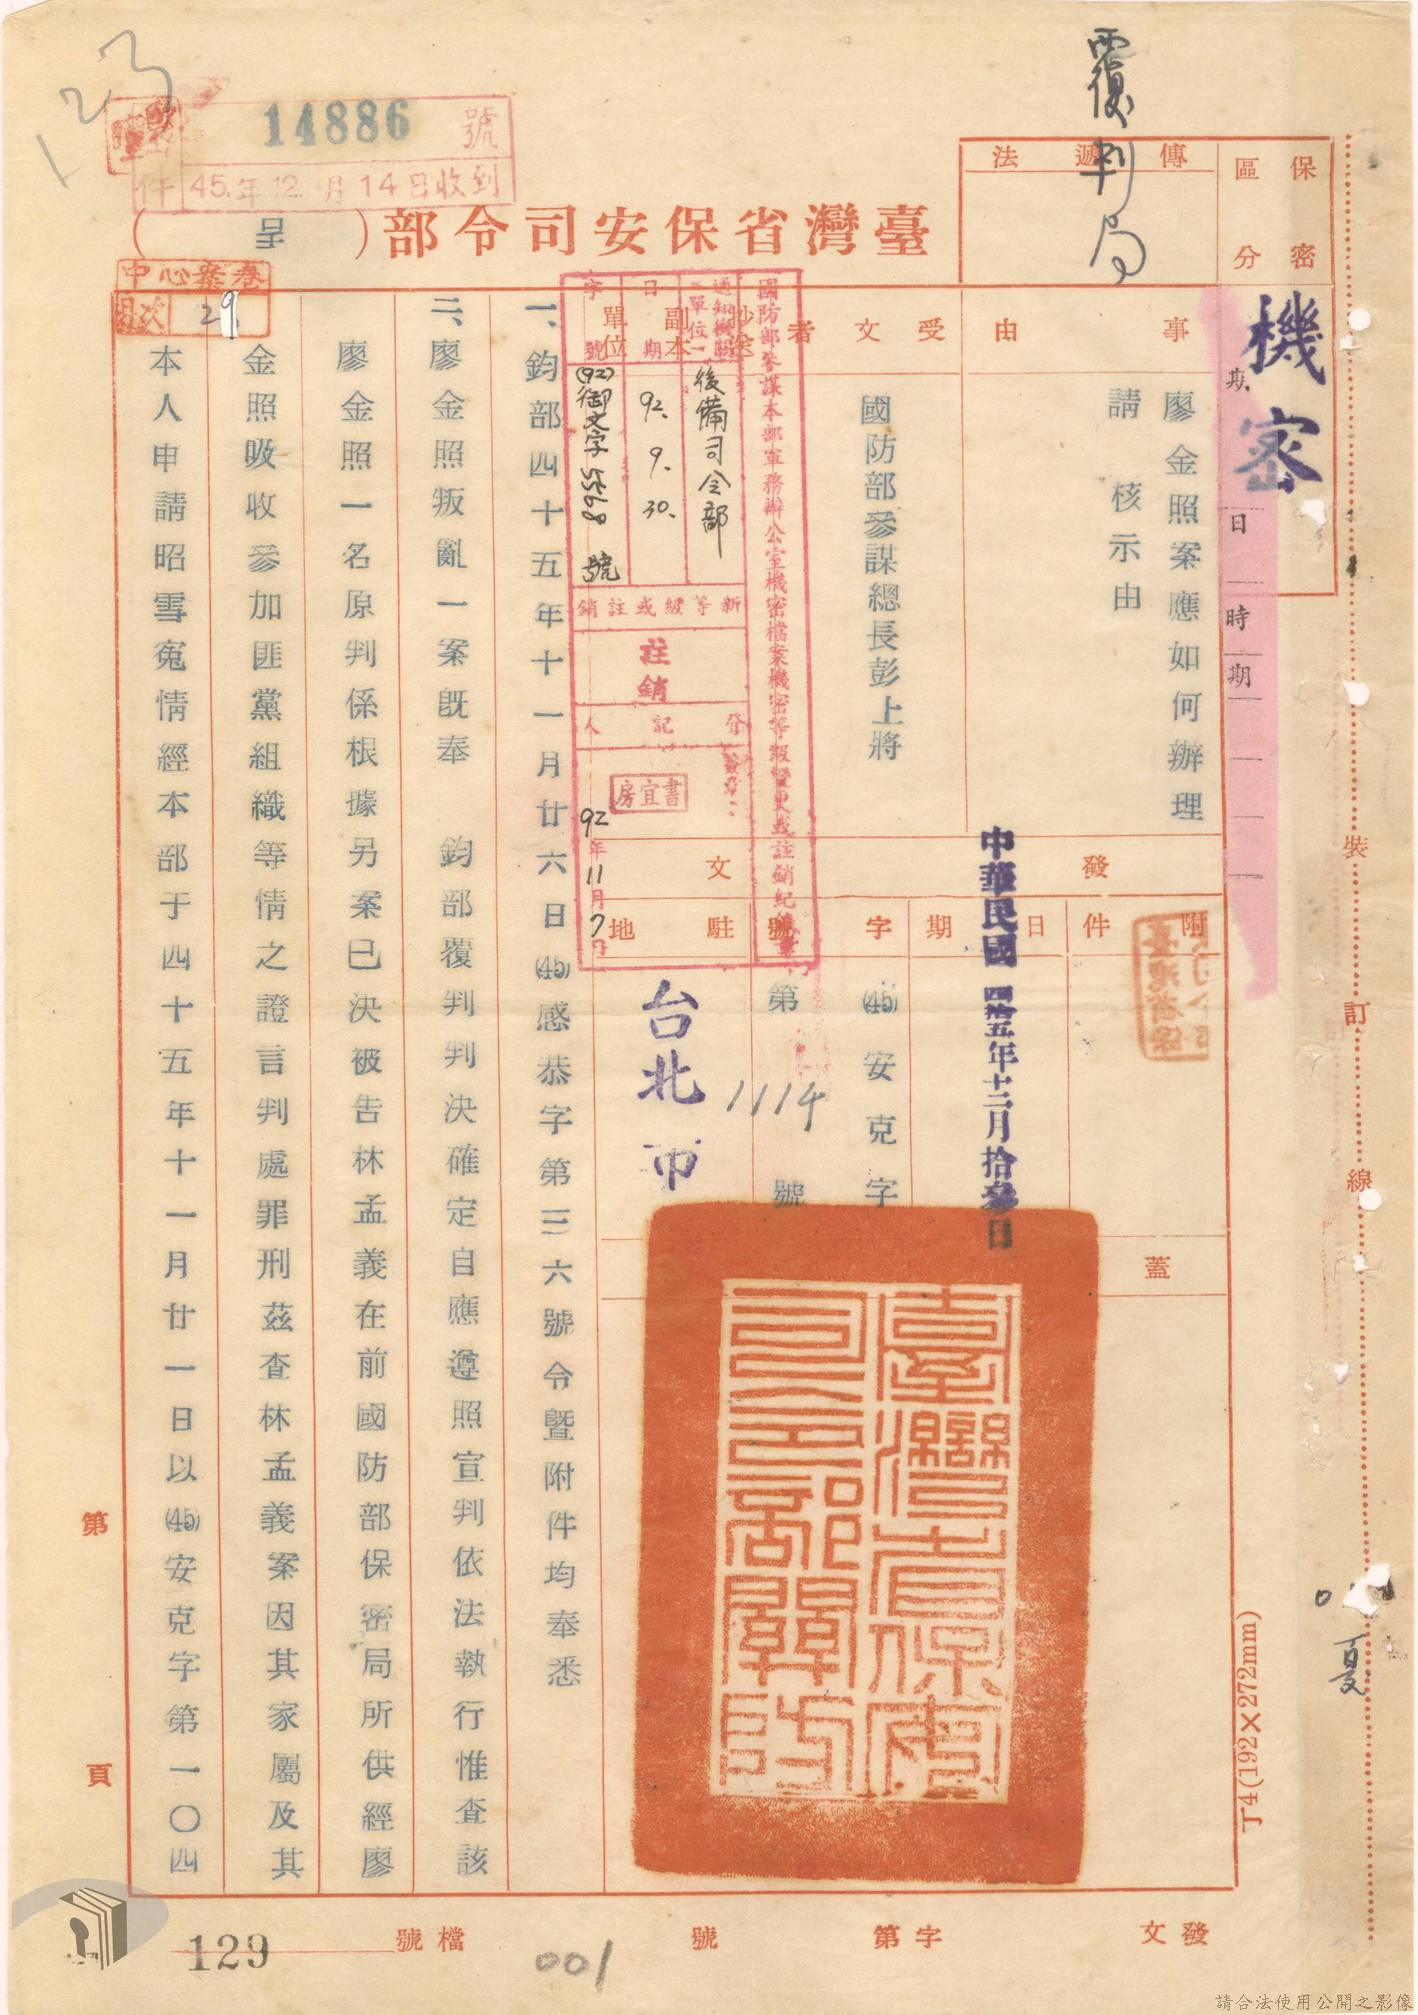 123
14886 號
件 45.年12.月14日收到
覆判局
臺灣省保安司令部(呈)
中心案卷
目次 29
保密區分
傳遞法
機密
期 日 時 期
事由
廖金照案應如何辦理
請 核示由
受文者
國防部參謀總長彭上將
副本抄送單位
國防部參謀本部軍務辦公室機密檔案機密等級變更或註銷紀錄
通知機關(單位)
後備司令部
日期
92. 9. 30.
字號
(92)御文字5598號
新等級或註銷
註銷
登記人
書宜房
92年11月7日
發文
附件
日期
中華民國四拾五年十二月拾參日
字號
(45)安克字
第1114號
駐地
台北市
蓋
臺灣省保安司令部關防
一、鈞部四十五年十一月廿六日(45)感恭字第三六號令暨附件均奉悉
二、廖金照叛亂一案既奉 鈞部覆判判決確定自應遵照宣判依法執行惟查該
廖金照一名原判係根據另案已決被告林孟義在前國防部保密局所供經廖
金照吸收參加匪黨組織等情之證言判處罪刑茲查林孟義案因其家屬及其
本人申請昭雪寃情經本部于四十五年十一月廿一日以(45)安克字第一〇四
裝 訂 線
夏
丁4(192×272mm)
第 頁
發文 字第 號
檔號
001
129
請合法使用公開之影像